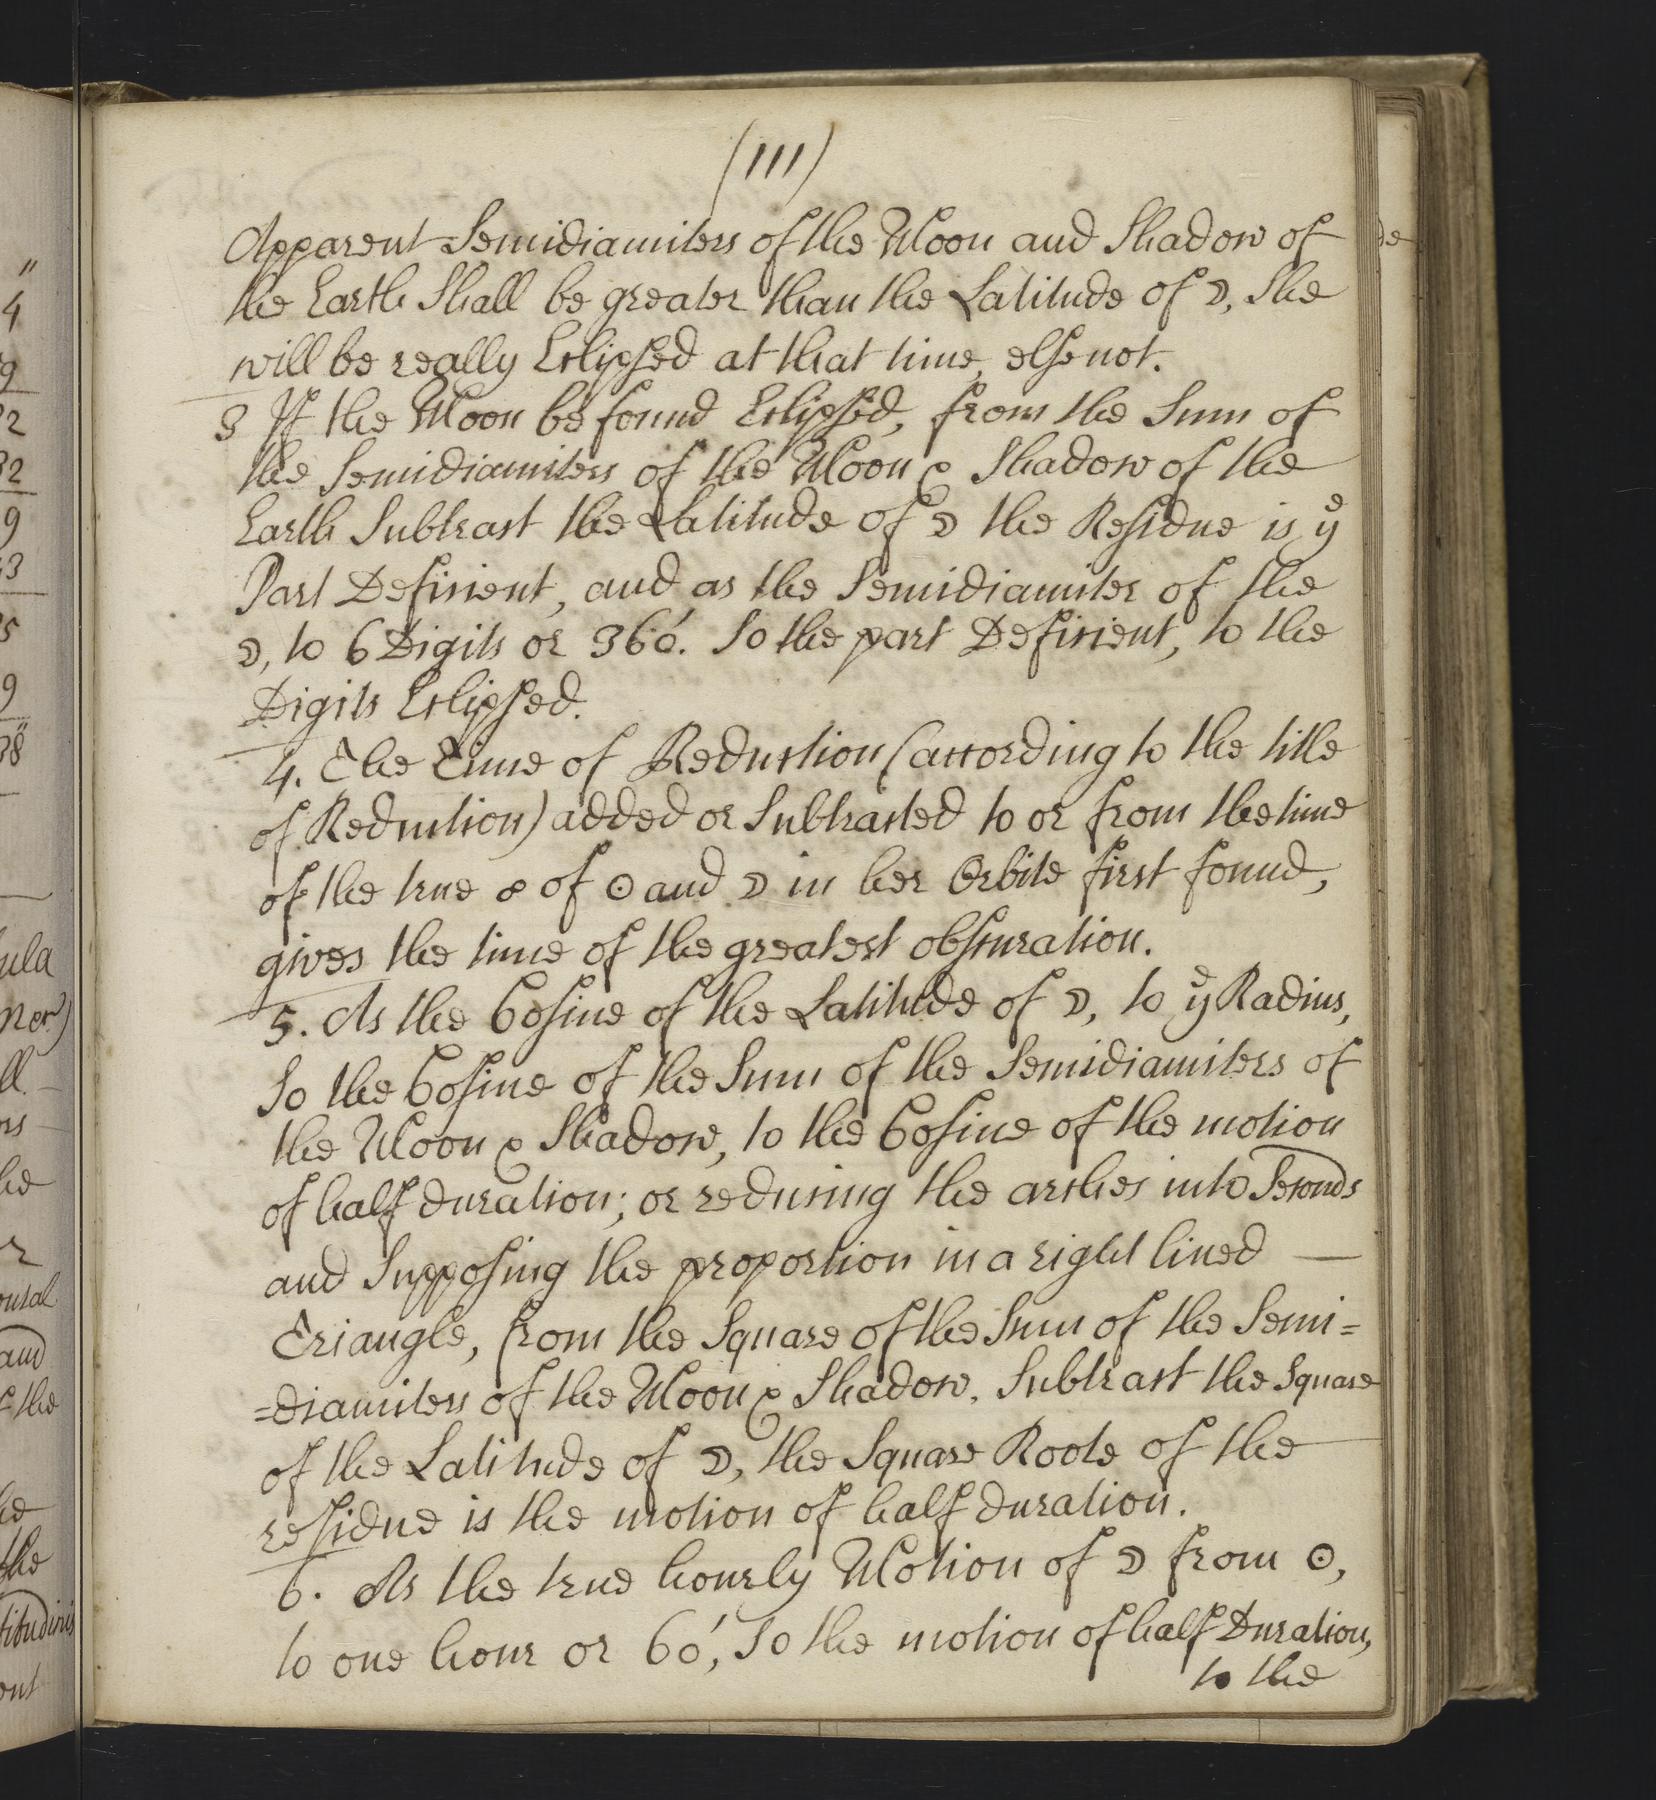 (111)
Apparent Semidiamiters of the Moon and Shadow of
the Earth Shall be greater than the Latitude of ☽, She
will be really Eclipsed at that time, else not.
3 If the Moon be found Eclipsed, from the Sum of
the Semidiamiters of the Moon & Shadow of the
Earth Subtract the Latitude of ☽ the Residue is yᵉ
Part Deficient, and as the Semidiamiter of the
☽, to 6 Digits or 360′. So the part Deficient, to the
Digits Eclipsed.
4. The Time of Reduction (according to the title
of Reduction) added or Subtracted to or from the time
of the true ☍ of ☉ and ☽ in her Orbite first found,
gives the time of the greatest obscuration.
5. As the Cosine of the Latitude of ☽, to yᵉ Radius,
So the Cosine of the Sum of the Semidiamiters of
the Moon & Shadow, to the Cosine of the motion
of half duration; or reducing the arches into Seconds
and Supposing the proportion in a right lined —
Triangle, from the Square of the Sum of the Semi=
=diamiters of the Moon & Shadow, Subtract the Square
of the Latitude of ☽, the Square Roote of the
residue is the motion of half duration.
6. As the true hourly Motion of ☽ from ☉,
to one hour or 60′, So the motion of half Duration,
to the